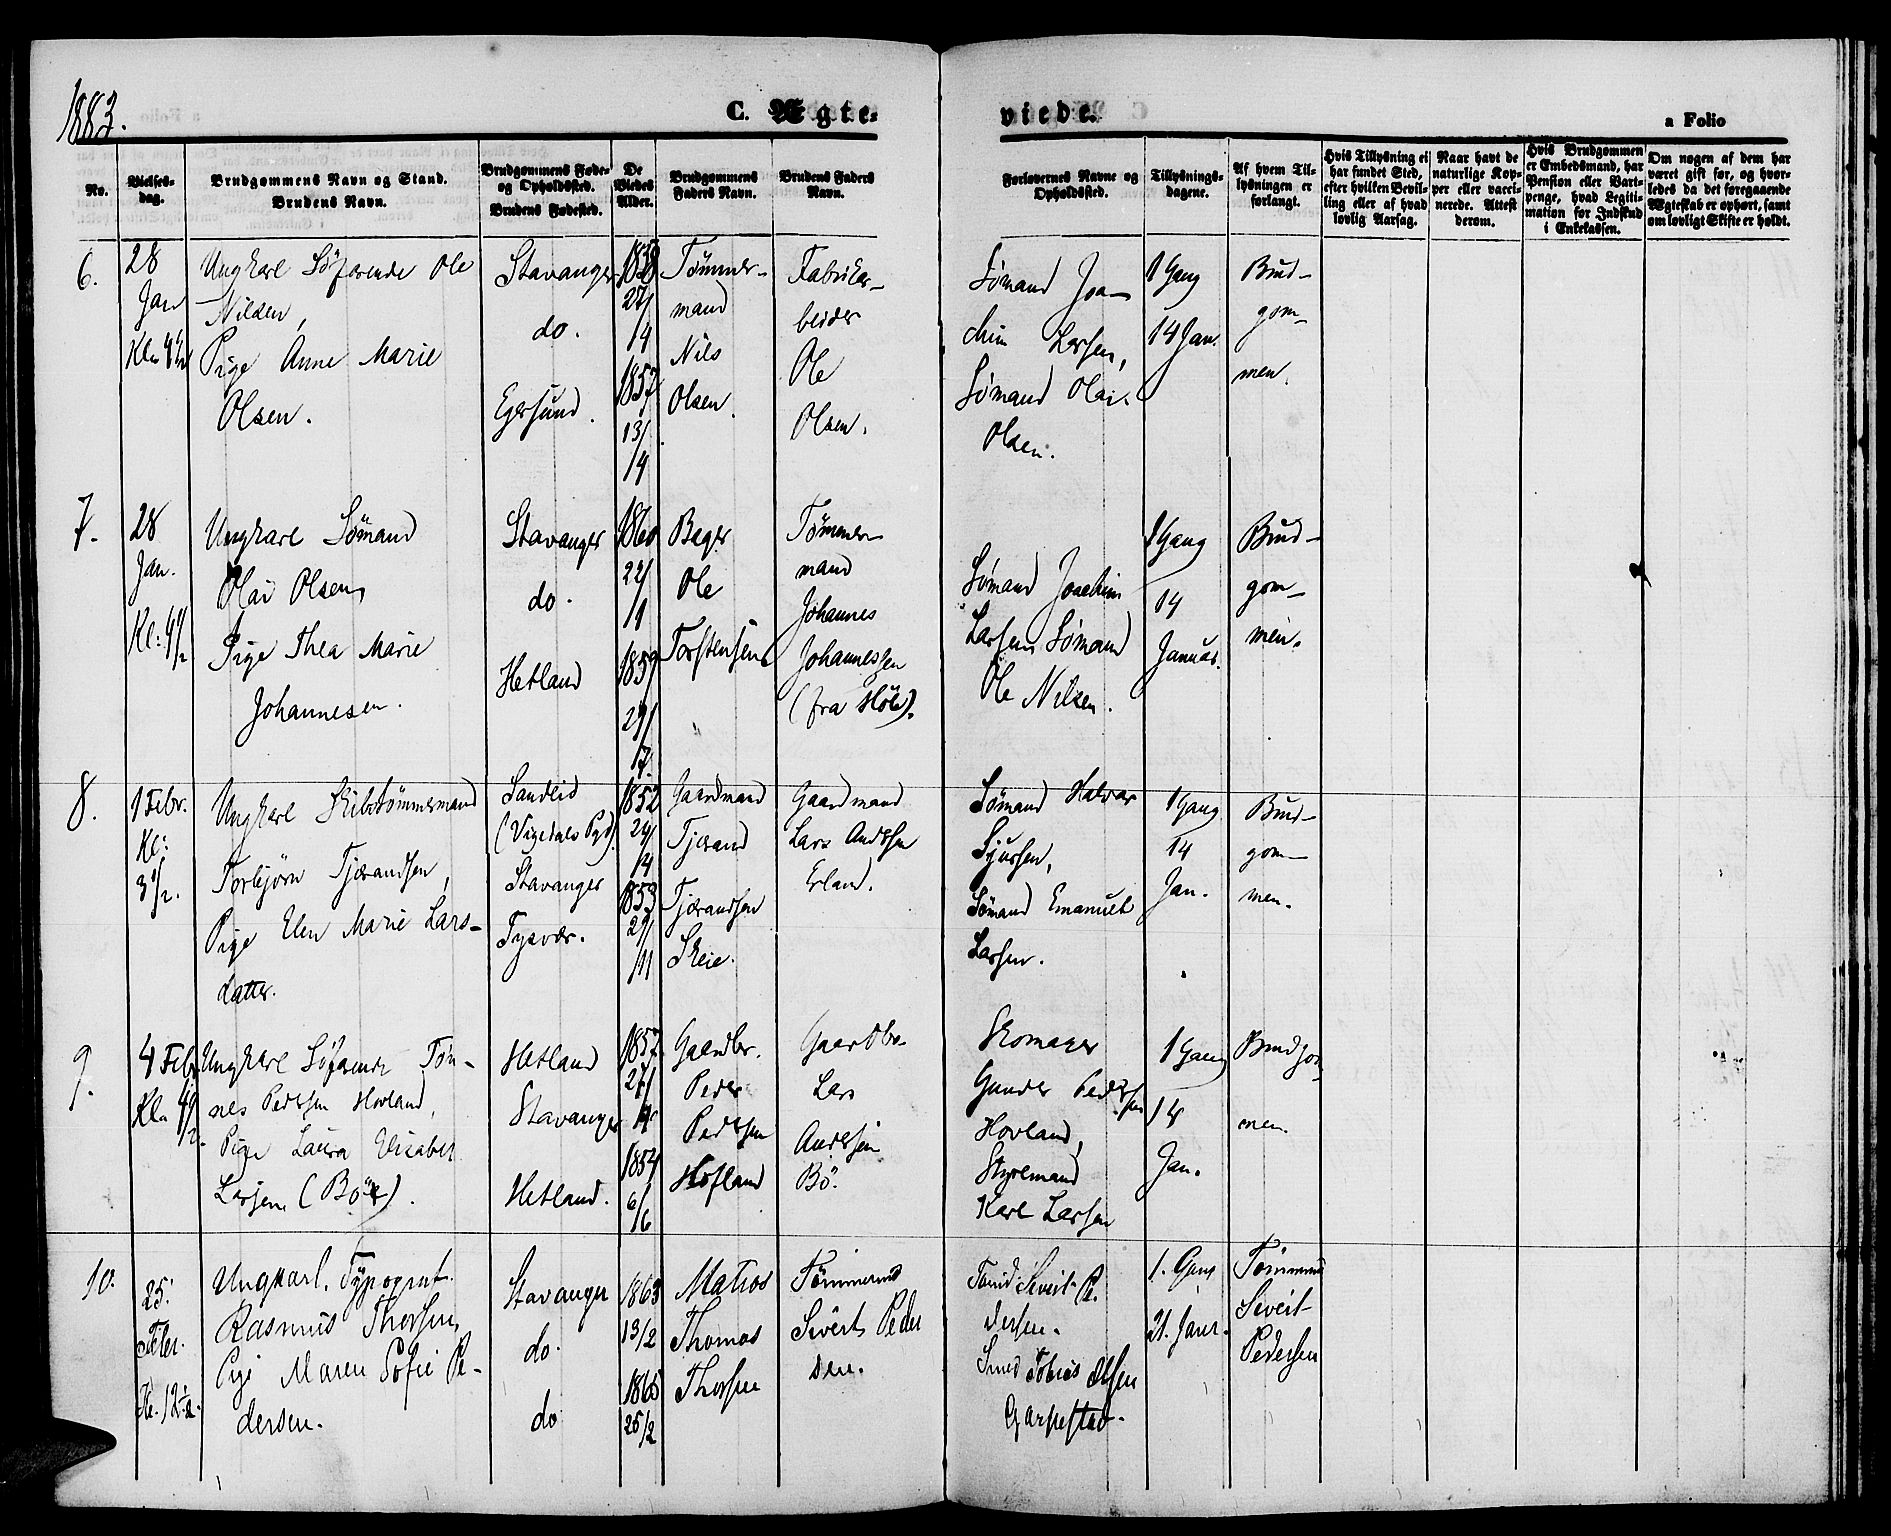 1883.
C. Ægte-
viede.
a Folio
No.
Vielses-
dag.
Brudgommens Navn og Stand.
Brudens Navn.
Brudgommens Føde-
og Opholdssted.
Brudens Fødested.
De
Viedes
Alder.
Brudgommens
Faders Navn.
Brudens Faders
Navn.
Forlovernes Navne og
Opholdssted.
Tillysnings-
dagene.
Af hvem Til-
lysningen er
forlangt.
Hvis Tillysning ei
har fundet Sted,
efter hvilken Bevil-
ling eller af hvad
lovlig Aarsag.
Naar havt de
naturlige Kop-
per eller vacci-
nerede. Attest
derom.
Hvis Brudgommen
er Embedsmand, har
Pension eller Vart-
penge, hvad Legiti-
mation for Indskud
i Enkekassen.
Om nogen af dem har
været gift før, og hvor-
ledes da det foregaaende
Ægteskab er ophørt, samt
om lovligt Skifte er holdt.
6.
28
Jan
Kl. 4 1/2
Ungkarl Søfarende Ole
Nilsen,
Pige Anne Marie
Olsen.
Stavanger
do.
Egersund.
1858
27/
/4
1857
13/
/9
Tømmer-
mand
Nils
Olsen.
Fabrikar-
beider
Ole
Olsen.
Sømand Joa-
chim Larsen,
Sømand Olai
Olsen.
1 Gang
14 Jan.
Brud-
gom-
men.
7.
28
Jan.
Kl: 4 1/2
Ungkarl Sømand
Olai Olsen,
Pige Thea Marie
Johannesen.
Stavanger
do.
Hetland
1860
22/
/1
1859
29/
/7.
Bager
Ole
Torstensen
Tømmer-
mand
Johannes
Johannessen
(fra Høle).
Sømand Joachim
Larsen, Sømand
Ole Nilsen.
1 Gang
14
Januar.
Brud-
gom-
men.
8.
1 Febr.
Kl:
3 1/2.
Ungkarl Skibstømmermand
Torbjørn Tjærandsen,
Pige Elen Marie Lars-
datter.
Sandeid
(Vigedals Pgd)
Stavanger
Tysvær.
1852
24/
/4
1853
29/
/11
Gaardmand
Tjærand
Tjærandsen
Skeie.
Gaardmand
Lars Andersen
Erland.
Sømand Halvar
Sjursen,
Sømand Emanuel
Larsen.
1 Gang
14
Jan.
Brud-
gom-
men.
9.
4 Febr.
Kl. 4 1/2.
Ungkarl Søfarende Tøn-
nes Pedersen Hovland,
Pige Laura Elisabet
Larsen (Bø).
Hetland
Stavanger
Hetland.
1857
27/
1854
6/
/6
Gaardbr.
Peder
Pedersen
Hofland
Gaardbr.
Lars
Andersen
Bø.
Skomager
Gunder Pedersen
Hovland,
Styrmand
Karl Larsen
1 Gang
14
Jan.
Brudgom-
men.
10.
25.
Febr.
Kl. 12 1/2.
Ungkarl. Typograf.
Rasmus Thorsen,
Pige Maren Sofie Pe-
dersen.
Stavanger
do.
do
1863
13/2
1865
25/2
Matros
Thomas
Thorsen
Tømmermd
Sivert Peder
sen.
Tmd: Sivert Pe-
dersen.
Smed Tobias Olsen
Garpestad.
1. Gang
21. Janr.
Tømmermd
Sivert
Pedersen